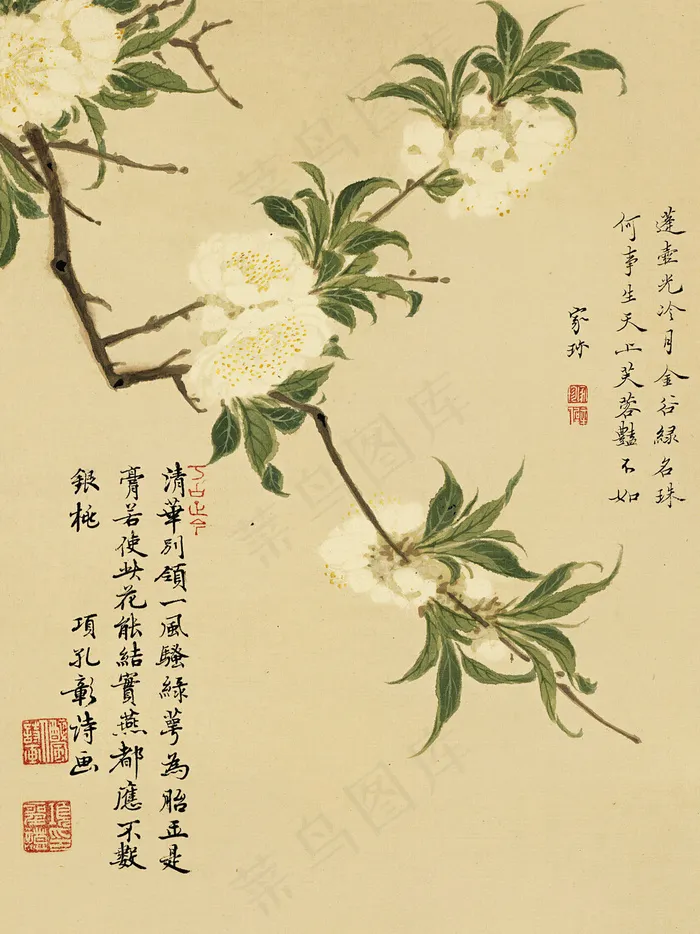 蓬壺光冷月金谷緑名珠
何事生天上芙蓉豔不如
家珍
清華別領一風騷緑萼為胎玉是
膏若使此花能結實燕都應不數
銀桃
項孔彰詩画
菜鸟图库